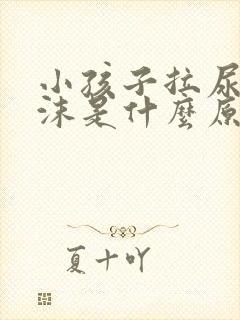 小孩子拉尿
沫是什麼原
夏十吖